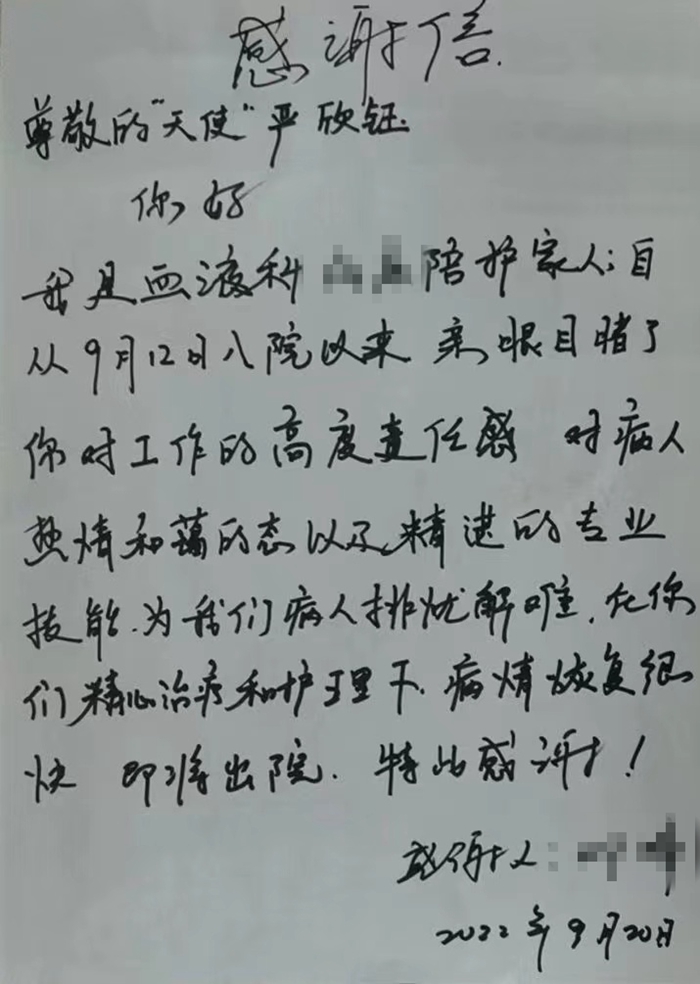 感谢信.
尊敬的"天使"严欣钰.
你好
我是血液科 陪护家人:自
从9月12日八院以来 亲眼目睹了
你对工作的高度责任感 对病人
热情和蔼的态以及精进的专业
技能.为我们病人排忧解难.在你
们精心治疗和护理下.病情恢复很
快 即将出院.特此感谢!
感谢人:
2022年9月20日